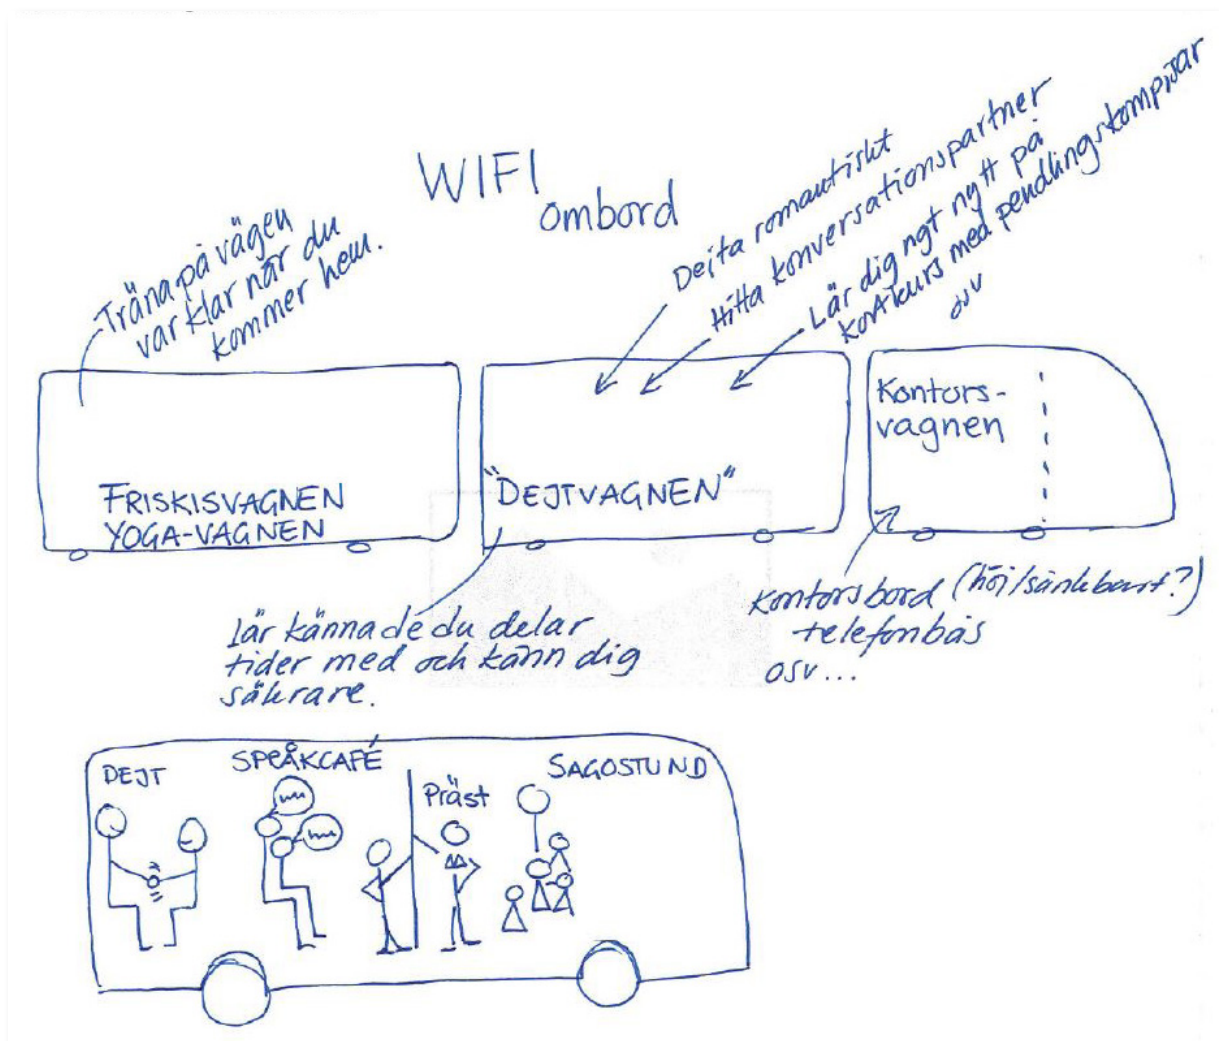 WIFI
ombord
Träna på vägen
var klar när du
kommer hem.
Dejta romantiskt
Hitta konversationspartner
Lär dig ngt nytt på
kortkurs med pendlingskompisar
osv
FRISKISVAGNEN
YOGA-VAGNEN
"DEJTVAGNEN"
Kontors-
vagnen
Lär känna de du delar
tider med och känn dig
säkrare.
Kontorsbord (höj/sänkbart?)
telefonbås
osv...
DEJT
SPRÅKCAFÉ
Präst
SAGOSTUND